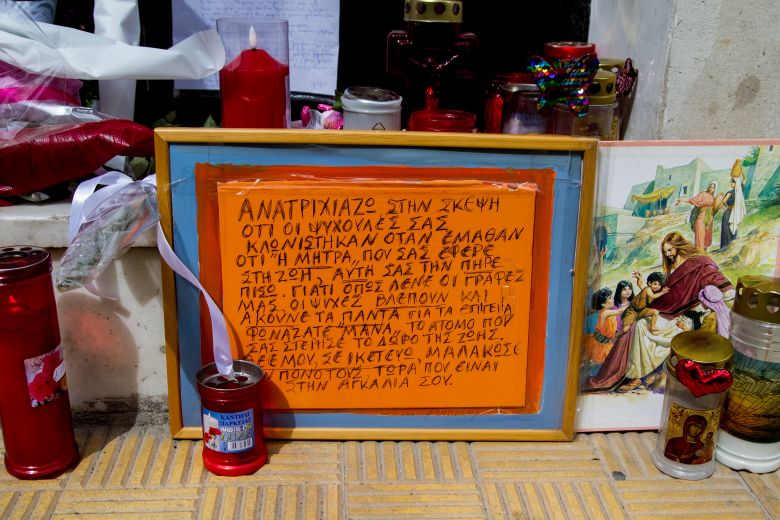 ΑΝΑΤΡΙΧΙΑΖΩ ΣΤΗΝ ΣΚΕΨΗ
ΟΤΙ ΟΙ ΨΥΧΟΥΛΕΣ ΣΑΣ
ΚΛΟΝΙΣΤΗΚΑΝ ΟΤΑΝ ΕΜΑΘΑΝ
ΟΤΙ "Η ΜΗΤΡΑ", ΠΟΥ ΣΑΣ ΕΦΕΡΕ
ΣΤΗ ΖΩΗ, ΑΥΤΗ ΣΑΣ ΤΗΝ ΠΗΡΕ
ΠΙΣΩ. ΓΙΑΤΙ ΟΠΩΣ ΛΕΝΕ ΟΙ ΓΡΑΦΕΣ
ΜΑΣ ΟΙ ΨΥΧΕΣ ΒΛΕΠΟΥΝ ΚΑΙ
ΑΚΟΥΝΕ ΤΑ ΠΑΝΤΑ ΓΙΑ ΤΑ ΕΠΙΓΕΙΑ
ΦΩΝΑΖΑΤΕ "ΜΑΝΑ" ΤΟ ΑΤΟΜΟ ΠΟΥ
ΣΑΣ ΣΤΕΡΗΣΕ ΤΟ ΔΩΡΟ ΤΗΣ ΖΩΗΣ.
ΘΕΕ ΜΟΥ, ΣΕ ΙΚΕΤΕΥΩ, ΜΑΛΑΚΩΣΕ
ΠΟΝΟ ΤΟΥΣ ΤΩΡΑ ΠΟΥ ΕΙΝΑΙ
ΣΤΗΝ ΑΓΚΑΛΙΑ ΣΟΥ.
ΚΑΝΤΗΛΙ
ΔΙΑΡΚΕΙΑΣ